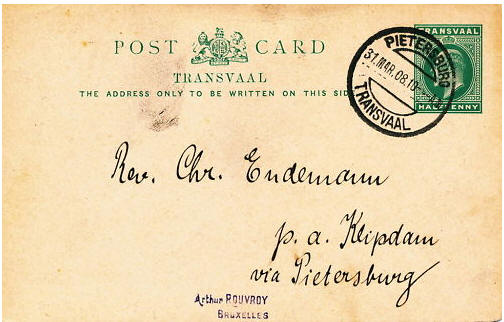 POST CARD
TRANSVAAL
THE ADDRESS ONLY TO BE WRITTEN ON THIS SIDE
TRANSVAAL
HALFPENNY
PIETERSBURG
31.MAR.08.10
TRANSVAAL
Rev. Chr. Endemann
p. a. Klipdam
via Pietersburg
Arthur ROUVROY
BRUXELLES